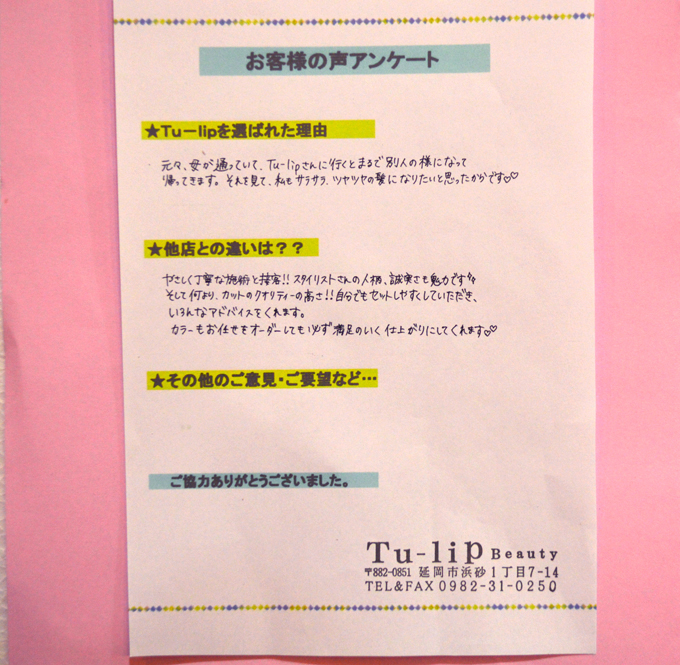 お客様の声アンケート
★Tu－lipを選ばれた理由
元々、母が通っていて、Tu-lipさんに行くとまるで別人の様になって
帰ってきます。それを見て、私もサラサラ、ツヤツヤの髪になりたいと思ったからです♡♡
★他店との違いは？？
やさしく丁寧な施術と接客!!スタイリストさんの人柄、誠実さも魅力です
そして何より、カットのクオリティーの高さ!!自分でもセットしやすくしていただき、
いろんなアドバイスをくれます。
カラーもお任せをオーダーしても必ず満足のいく仕上がりにしてくれます♡♡
★その他のご意見・ご要望など…
ご協力ありがとうございました。
Tu-lip Beauty
〒882-0851 延岡市浜砂1丁目7-14
TEL&FAX 0982-31-0250